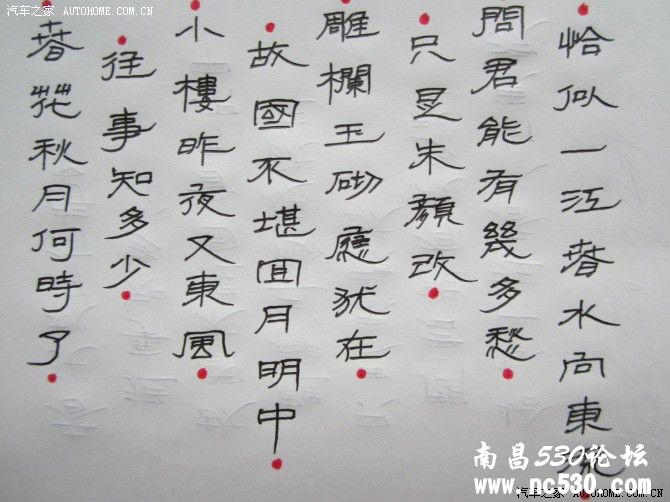 汽车之家 AUTOHOME.COM.CN
春花秋月何時了
往事知多少
小樓昨夜又東風
故國不堪回月明中
雕欄玉砌應猶在
只是朱顏改
問君能有幾多愁
恰似一江春水向東流
南昌530论坛
www.nc530.com
汽车之家 AUTOHOME.COM.CN